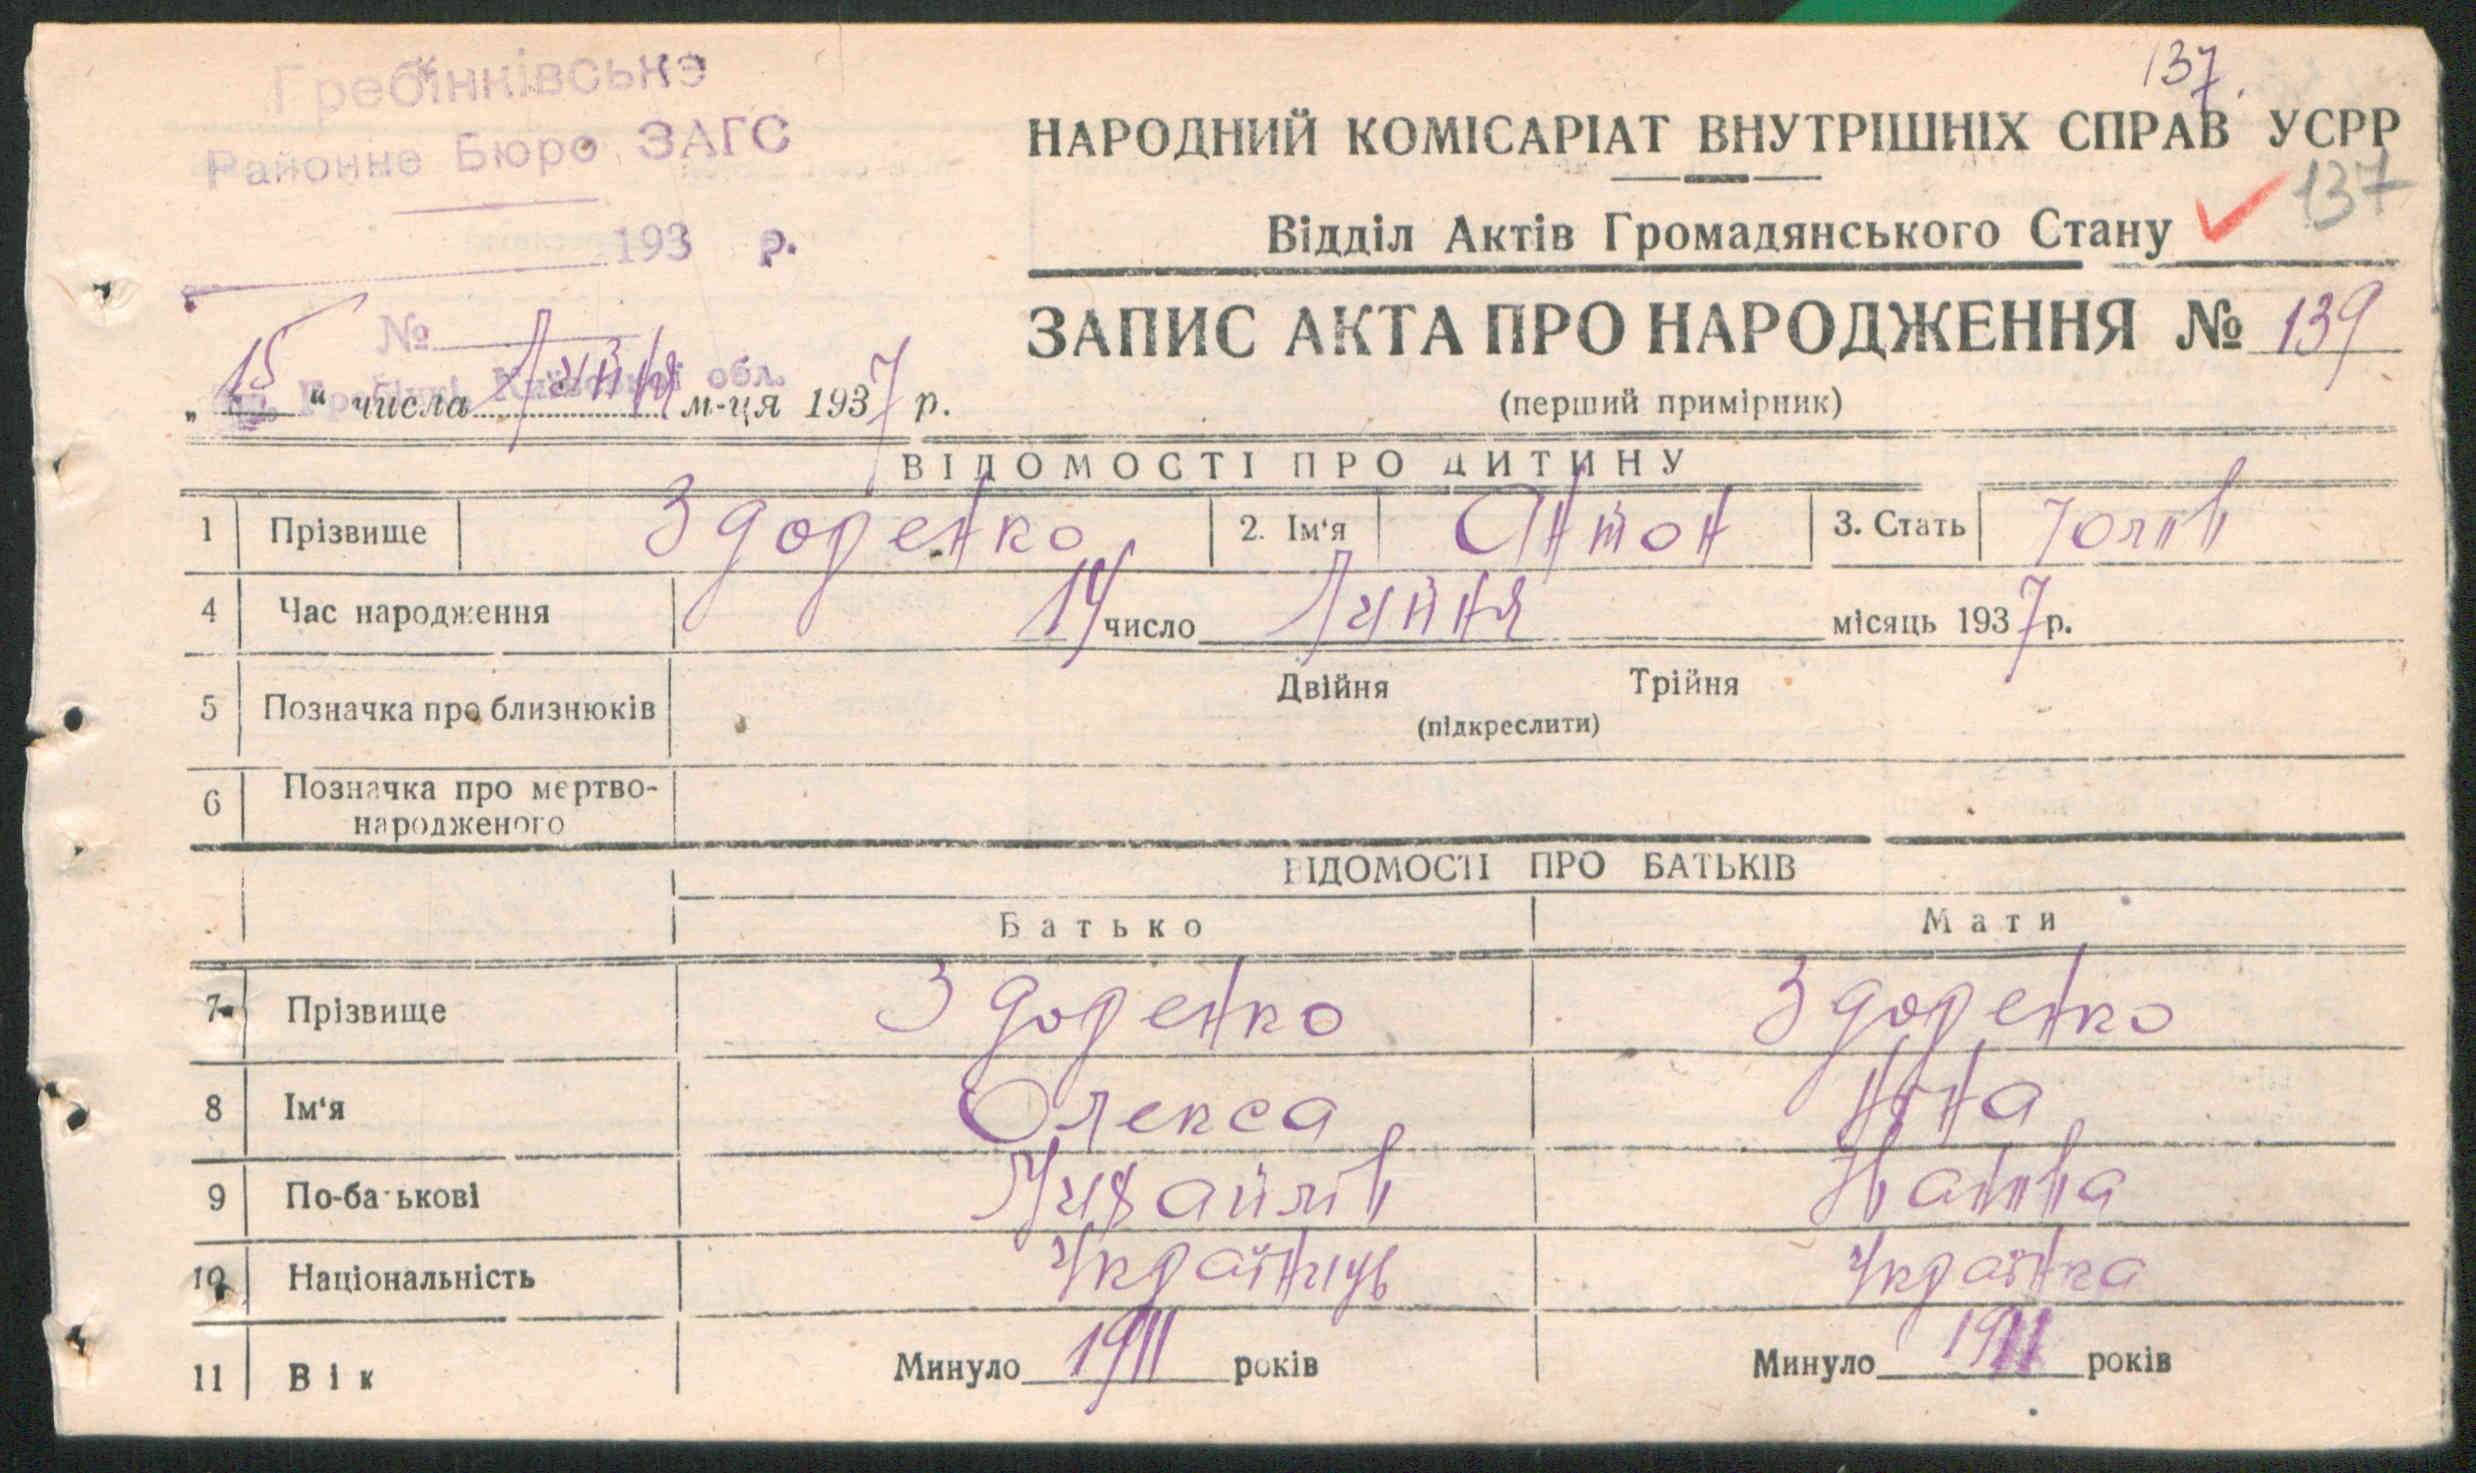 137
Гребінківське
Районне Бюро ЗАГС
193 р.
№
Гребінки, Київської обл.
„ 15 “ числа Липня м-ця 1937 р.
НАРОДНИЙ КОМІСАРІАТ ВНУТРІШНІХ СПРАВ УСРР
137
Відділ Актів Громадянського Стану
ЗАПИС АКТА ПРО НАРОДЖЕННЯ № 139
(перший примірник)
ВІДОМОСТІ ПРО ДИТИНУ
1 Прізвище Здоренко 2. Ім‘я Антон 3. Стать Чолів
4 Час народження 14 число Липня місяць 1937 р.
5 Позначка про близнюків Двійня Трійня
(підкреслити)
6 Позначка про мертво-
народженого
ВІДОМОСТІ ПРО БАТЬКІВ
Батько Мати
7 Прізвище Здоренко Здоренко
8 Ім‘я Олекса Ганна
9 По-батькові Михайлів Іванівна
10 Національність Українець Українка
11 Вік Минуло 1911 років Минуло 1911 років